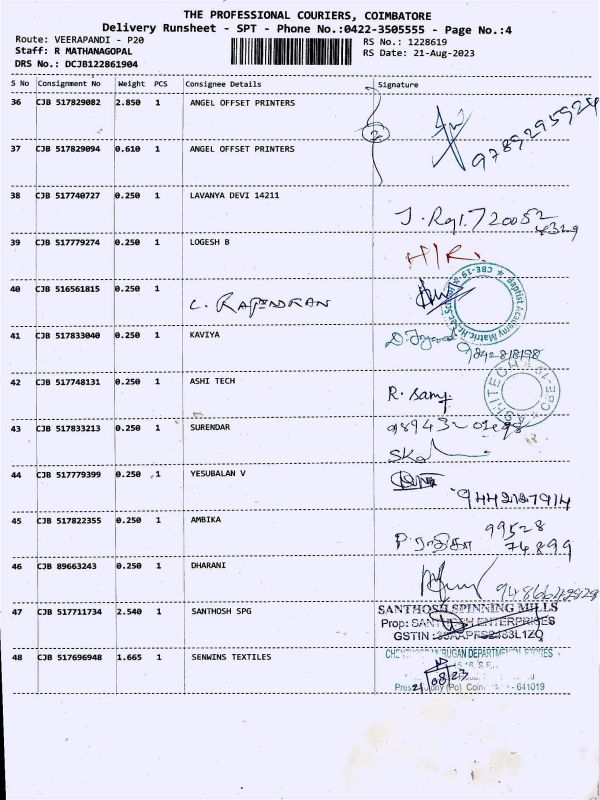 THE PROFESSIONAL COURIERS, COIMBATORE
Delivery Runsheet - SPT - Phone No.:0422-3505555 - Page No.:4
Route: VEERAPANDI - P20
RS No.: 1228619
Staff: R MATHANAGOPAL
RS Date: 21-Aug-2023
DRS No.: DCJB122861904
S No Consignment No Weight PCS Consignee Details Signature
36 CJB 517829082 2.850 1 ANGEL OFFSET PRINTERS
2
9789295924
37 CJB 517829094 0.610 1 ANGEL OFFSET PRINTERS
38 CJB 517740727 0.250 1 LAVANYA DEVI 14211
720052
4329
39 CJB 517779274 0.250 1 LOGESH B
H/R.
40 CJB 516561815 0.250 1
C. RAJENDRAN
Baptist Academy Matric.Hr.Sec.School CBE-19
41 CJB 517833040 0.250 1 KAVIYA
9842818198
42 CJB 517748131 0.250 1 ASHI TECH
R. Samy
ASHITECH
43 CJB 517833213 0.250 1 SURENDAR
44 CJB 517779399 0.250 1 YESUBALAN V
45 CJB 517822355 0.250 1 AMBIKA
99528
P. ராதிகா 74899
46 CJB 89663243 0.250 1 DHARANI
47 CJB 517711734 2.540 1 SANTHOSH SPG
SANTHOSH SPINNING MILLS
Prop: SANTHOSH ENTERPRISES
GSTIN
48 CJB 517696948 1.665 1 SENWINS TEXTILES
DEPARTMENTAL STORES
21/08/23
(Po) - 641019